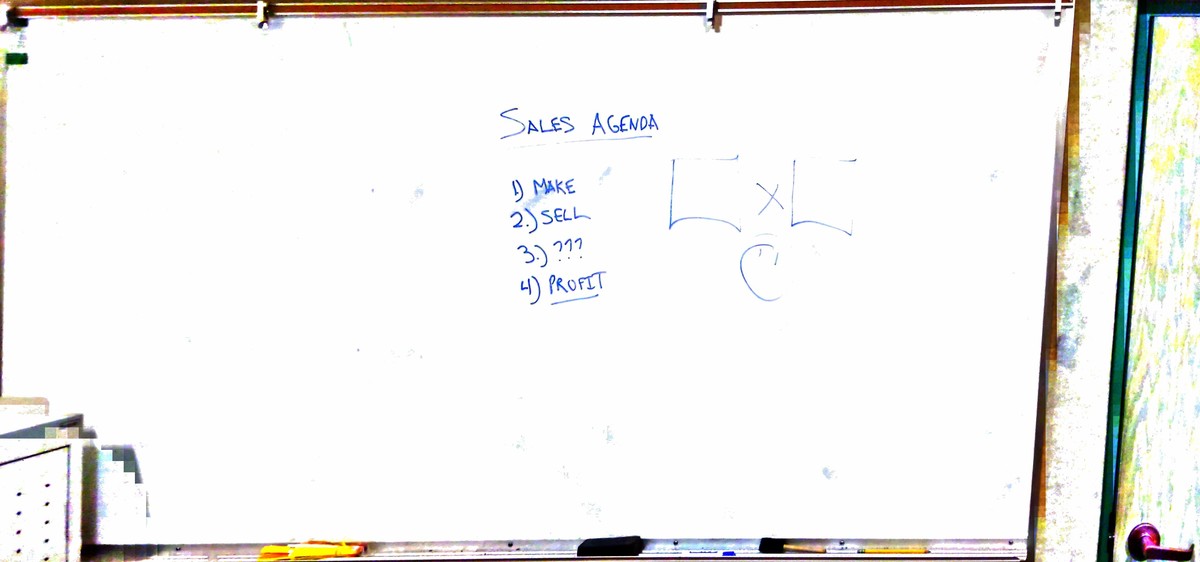 SALES AGENDA
1) MAKE
2.) SELL
3.) ???
4) PROFIT
X